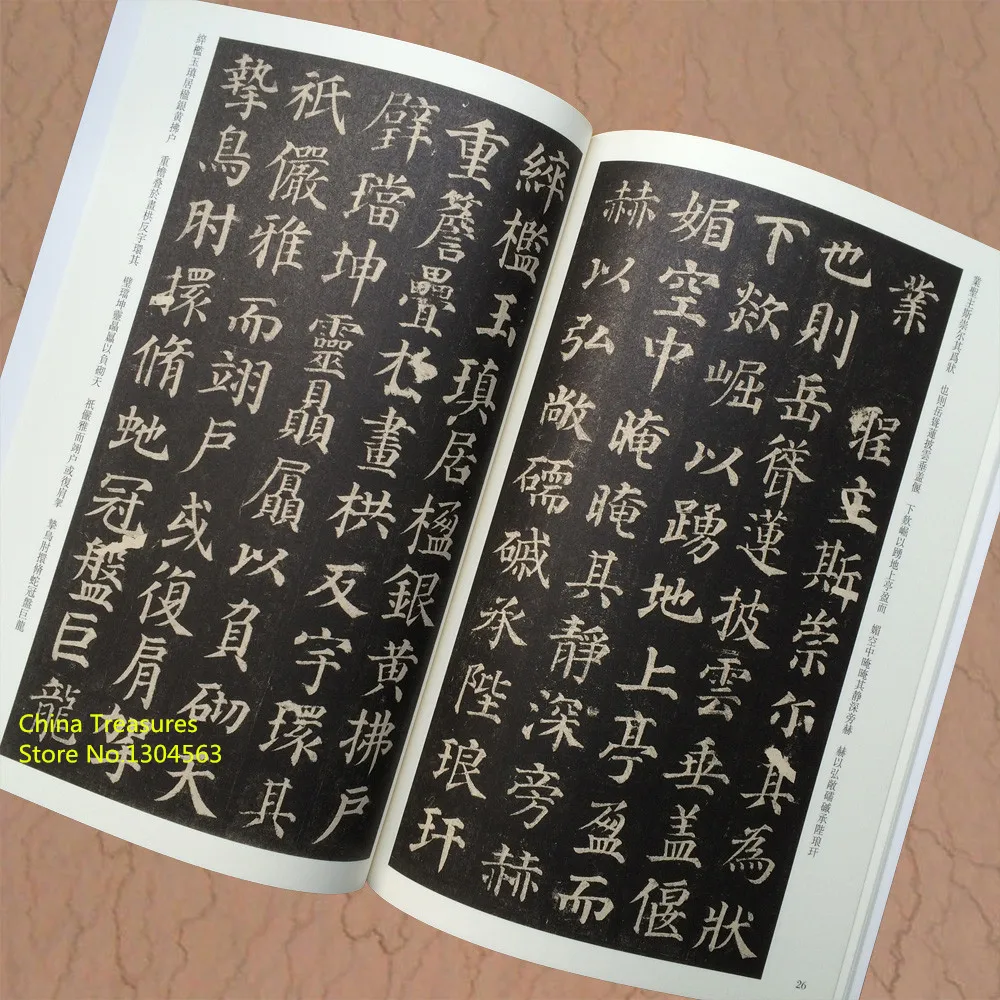 業聖主斯崇尔其爲狀　也則岳聳蓮披雲垂盖偃　下欻崛以踴地上亭盈而　媚空中晻晻其静深旁赫　赫以弘敞礝磩承陛琅玕
業　聖主斯崇尔其為狀
也則岳聳蓮披雲垂蓋偃
下欻崛以踴地上亭盈而
媚空中晻晻其靜深旁赫
赫以弘敞礝磩承陛琅玕
26
綷檻玉瑱居楹銀黃拂戶
重簷疊於畫栱反宇環其
璧璫坤靈贔屭以負砌天
祇儼雅而翊戶或復肩拏
摯鳥肘擐脩虵冠盤巨龍
綷檻玉瑱居楹銀黄拂户　重檐叠於畫栱反宇環其　璧璫坤靈贔屭以負砌天　祇儼雅而翊户或復肩拏　摯鳥肘擐脩蛇冠盤巨龍
China Treasures
Store No.1304563